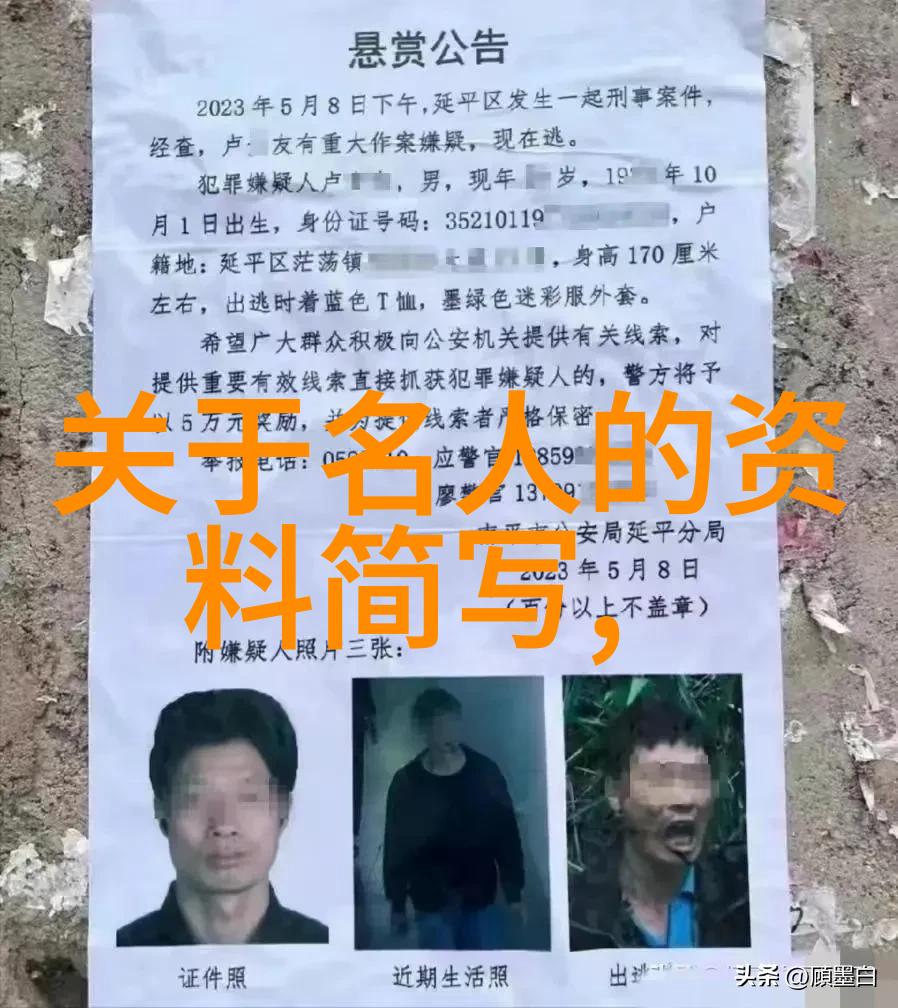 悬赏公告
2023年5月8日下午,延平区发生一起刑事案件,
经查,卢 友有重大作案嫌疑,现在逃。
犯罪嫌疑人卢 ,男,现年 岁,19 年10
月1日出生,身份证号码:35210119 ,户
籍地:延平区茫荡镇 ,身高170厘米
左右,出逃时着蓝色T恤,墨绿色迷彩服外套。
希望广大群众积极向公安机关提供有关线索,对
提供重要有效线索直接抓获犯罪嫌疑人的,警方将予
以5万元奖励,并为提供线索者严格保密
关于名人的资
料简写,
举报电话: 应警官
廖警官
公安局延平分局
2023年5月8日
以上不盖章)
附嫌疑人照片三张:
证件照 近期生活照 出逃
头条 @顾墨白